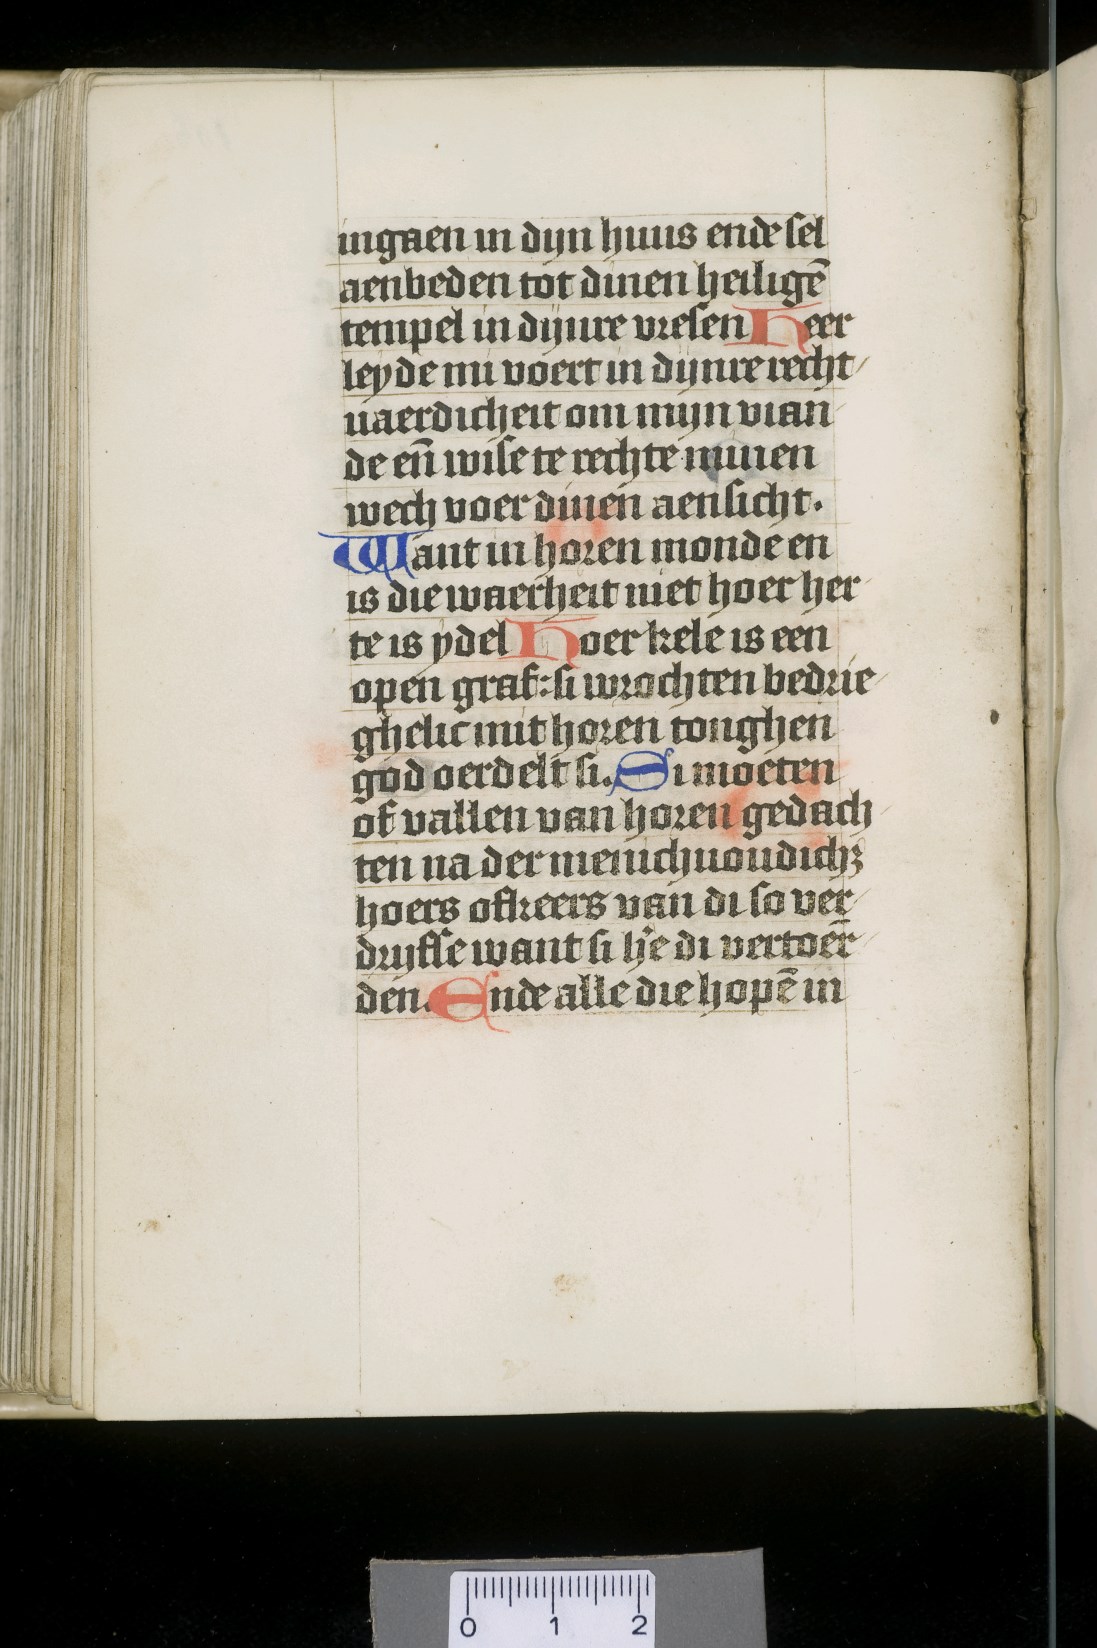 ingaen in dijn huus ende sel
aenbeden tot dinen heiligē
tempel in dijnre vresen Heer
leyde mi voert in dijnre recht
uaerdicheit om mijn vian
de eñ wise te rechte minen
wech voer dinen aensicht.
Want in horen monde en
is die waerheit niet hoer her
te is ydel Hoer kele is een
open graf: si wrochten bedrie
ghelic mit horen tonghen
god oerdelt si. Si moeten
of vallen van horen gedach
ten na der menichuoudichꝫ
hoers ofkeers van di so ver
drijfse want si hr̄e di vertoēr
den. Ende alle die hopē in
0 1 2